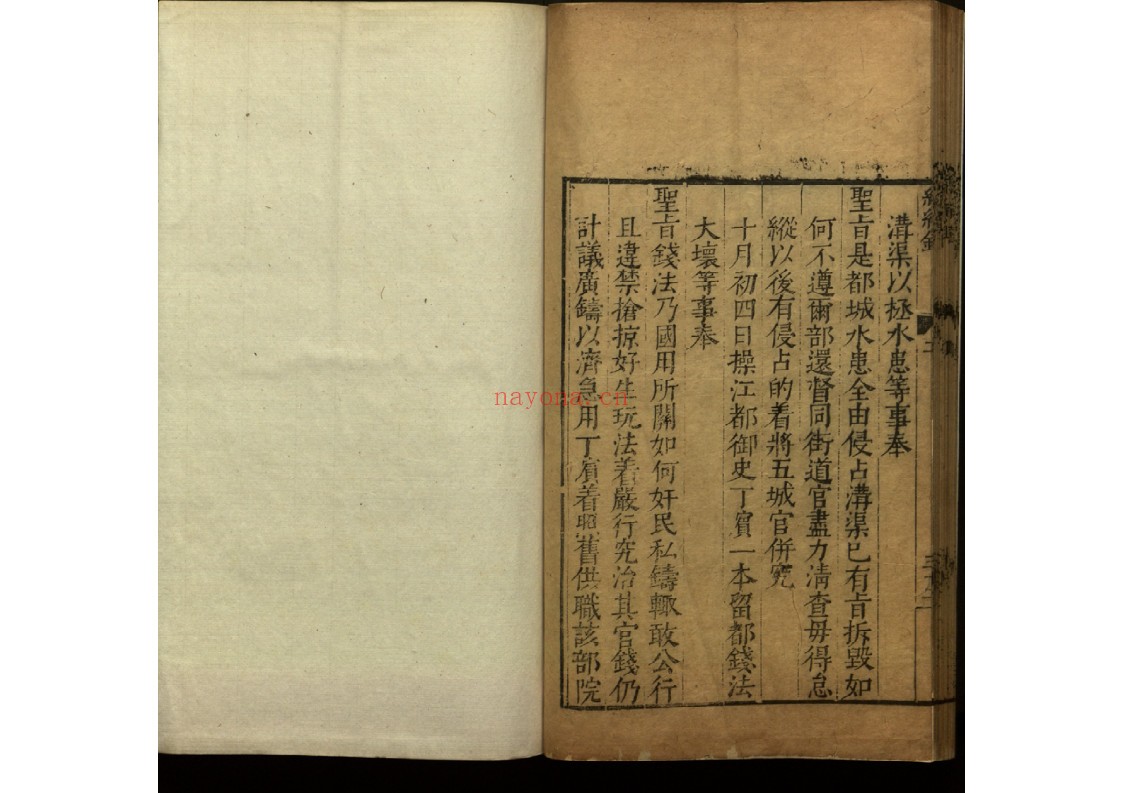 溝渠以拯水患等事奉
聖旨是都城水患全由侵占溝渠已有旨拆毀如
何不遵爾部還督同街道官盡力清查毋得怠
縱以後有侵占的着將五城官併究
十月初四日操江都御史丁賓一本留都錢法
大壞等事奉
聖旨錢法乃國用所關如何奸民私鑄輙敢公行
且違禁搶掠好生玩法着嚴行究治其官錢仍
計議廣鑄以濟急用丁賓着照舊供職該部院
nayona.cn